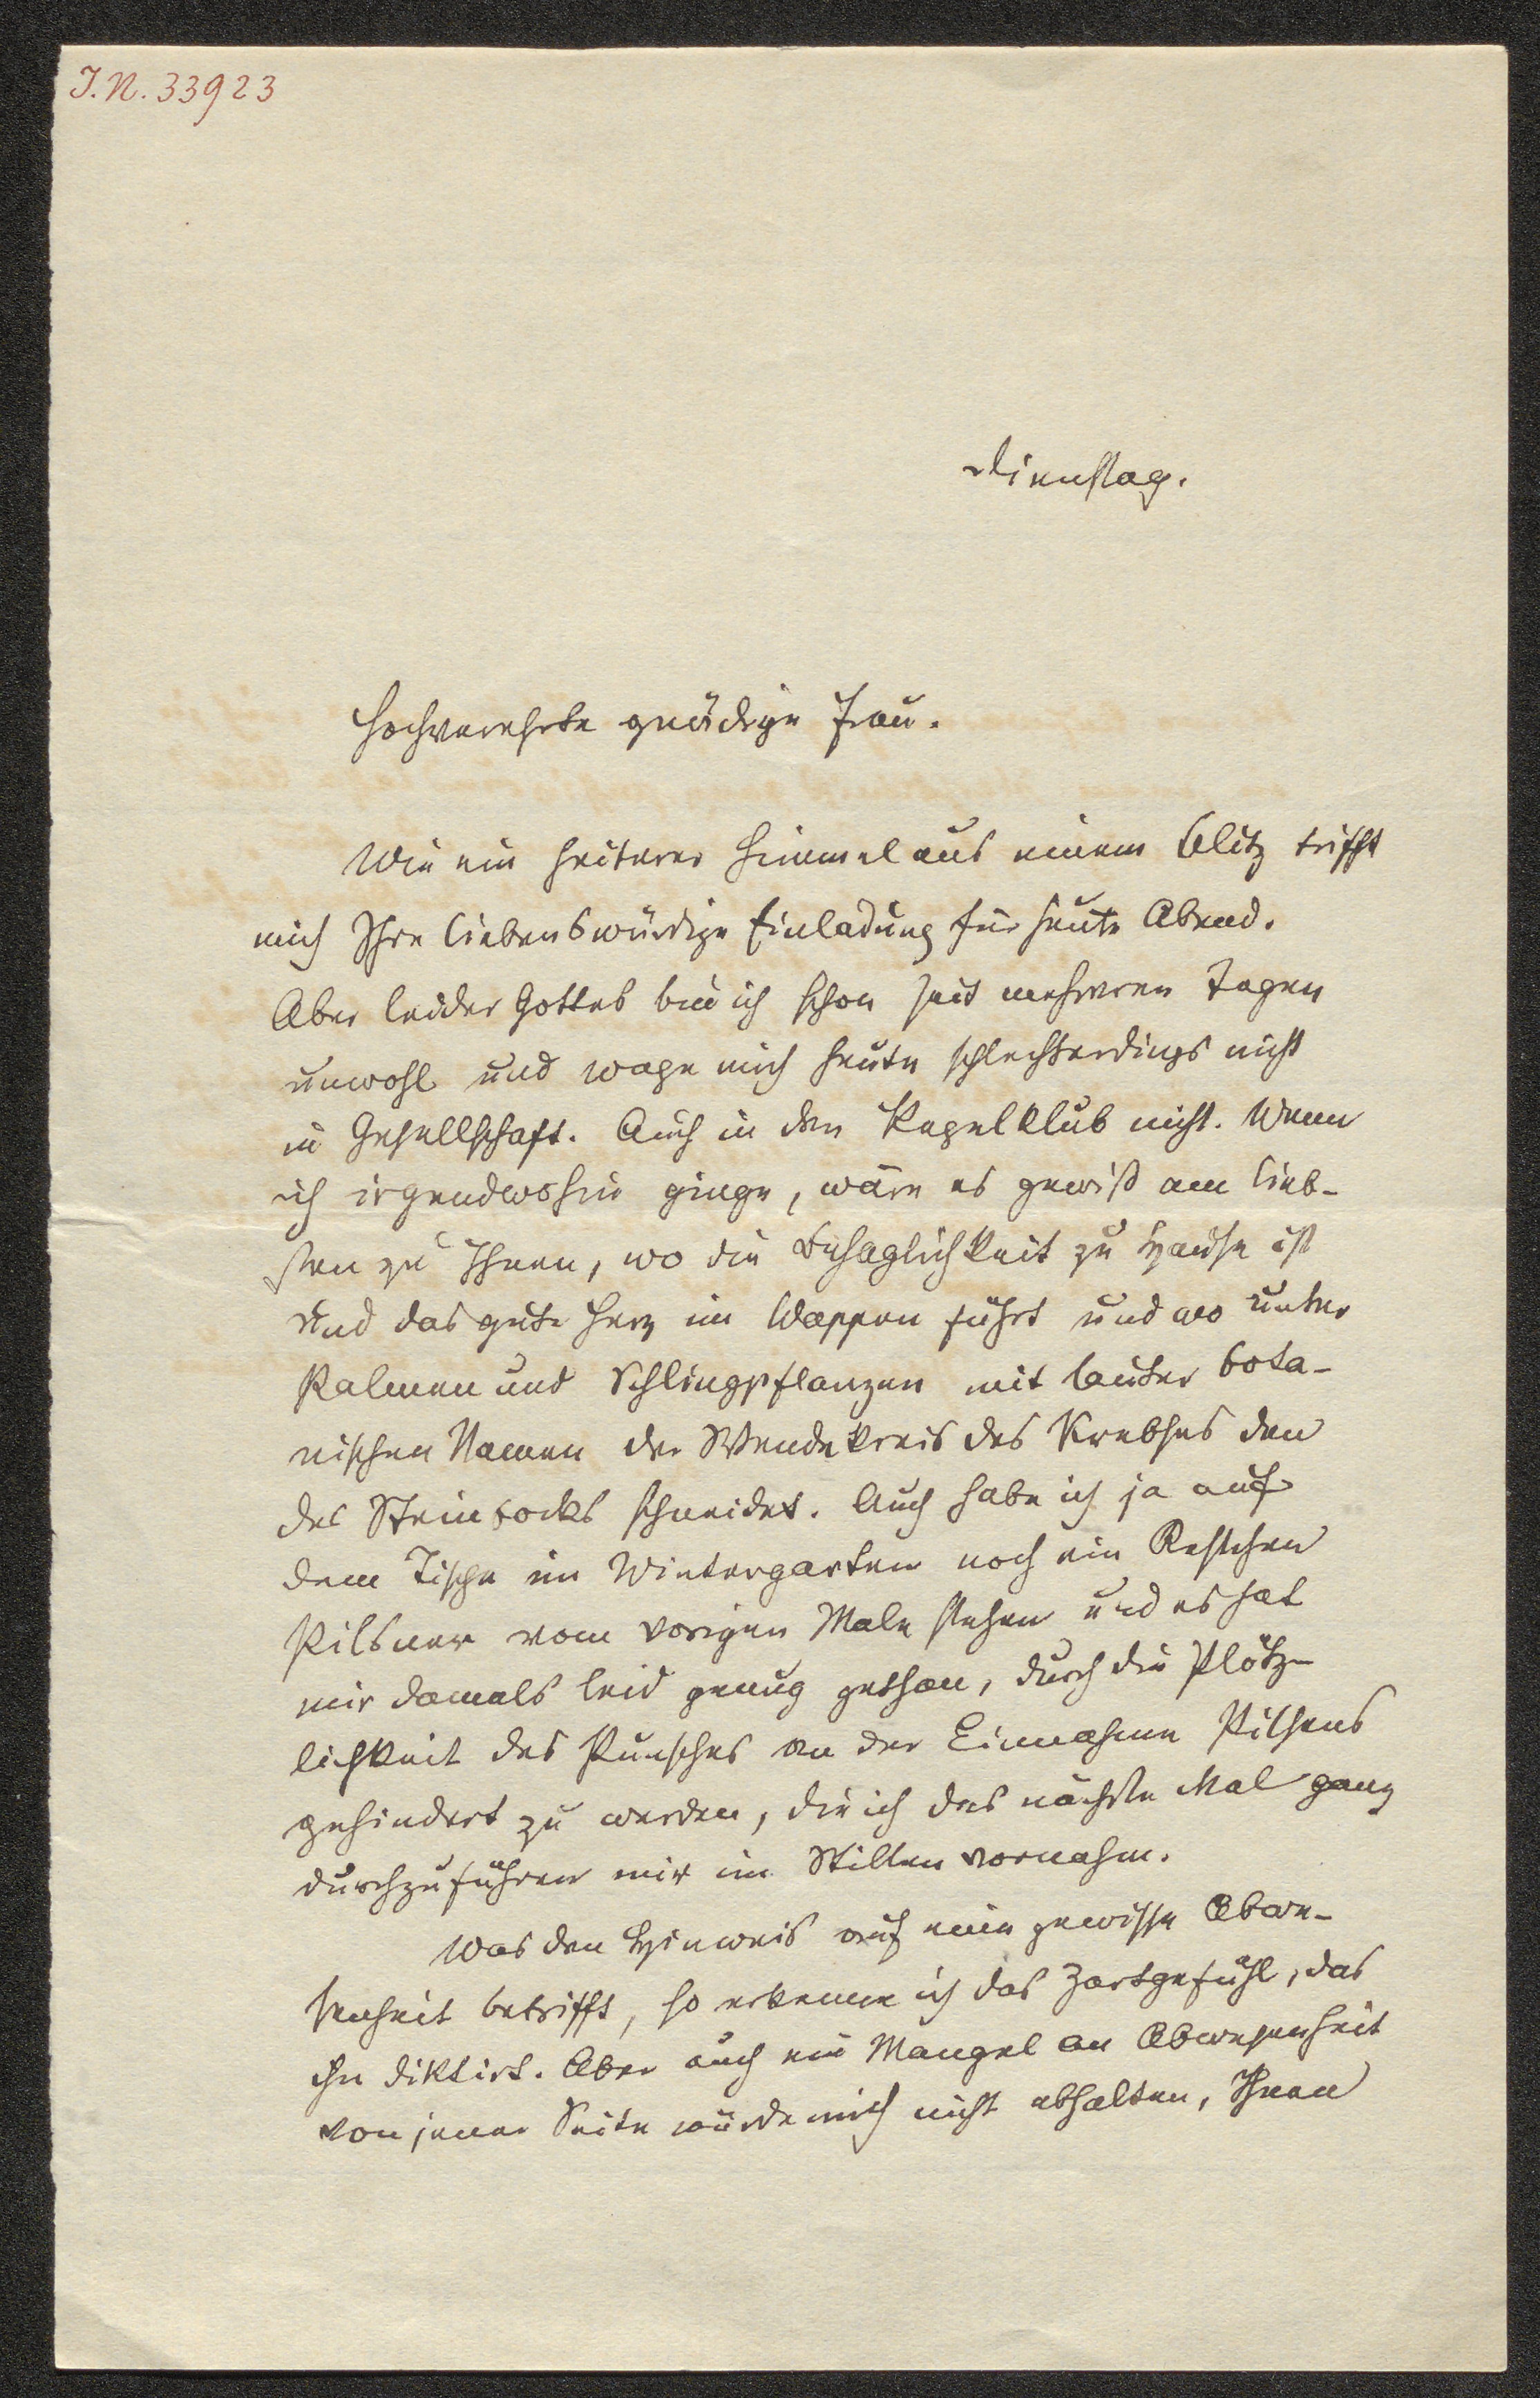 I.N. 33923
Dienstag.
Hochverehrte gnädige Frau.
Wie ein heiterer Himmel aus einem Blitz trifft
mich Ihre liebenswürdige Einladung für heute Abend.
Aber leider Gottes bin ich schon seit mehreren Tagen
unwohl und wage mich heute schlechterdings nicht
in Gesellschaft. Auch in den Kegelklub nicht. Wenn
ich irgendwohin ginge, wäre es gewiß am lieb-
sten zu Ihnen, wo die Behaglichkeit zu Hause ist
und das gute Herz im Wappen führt und wo unter
Palmen und Schlingpflanzen mit lauter bota-
nischen Namen der Wendekreis des Krebses den
des Steinbocks schneidet. Auch habe ich ja auf
dem Tische im Wintergarten noch ein Restchen
Pilsner vom vorigen Male stehen und es hat
mir damals leid genug gethan, durch die Plötz-
lichkeit des Punsches an der Einnahme Pilsens
gehindert zu werden, die ich das nächste Mal ganz
durchzuführen mir im Stillen vornahm.
Was den Hinweis auf eine gewisse Abwe-
senheit betrifft, so erkenne ich das Zartgefühl, das
ihn diktirt. Aber auch ein Mangel an Abwesenheit
von jener Seite würde mich nicht abhalten, Ihnen